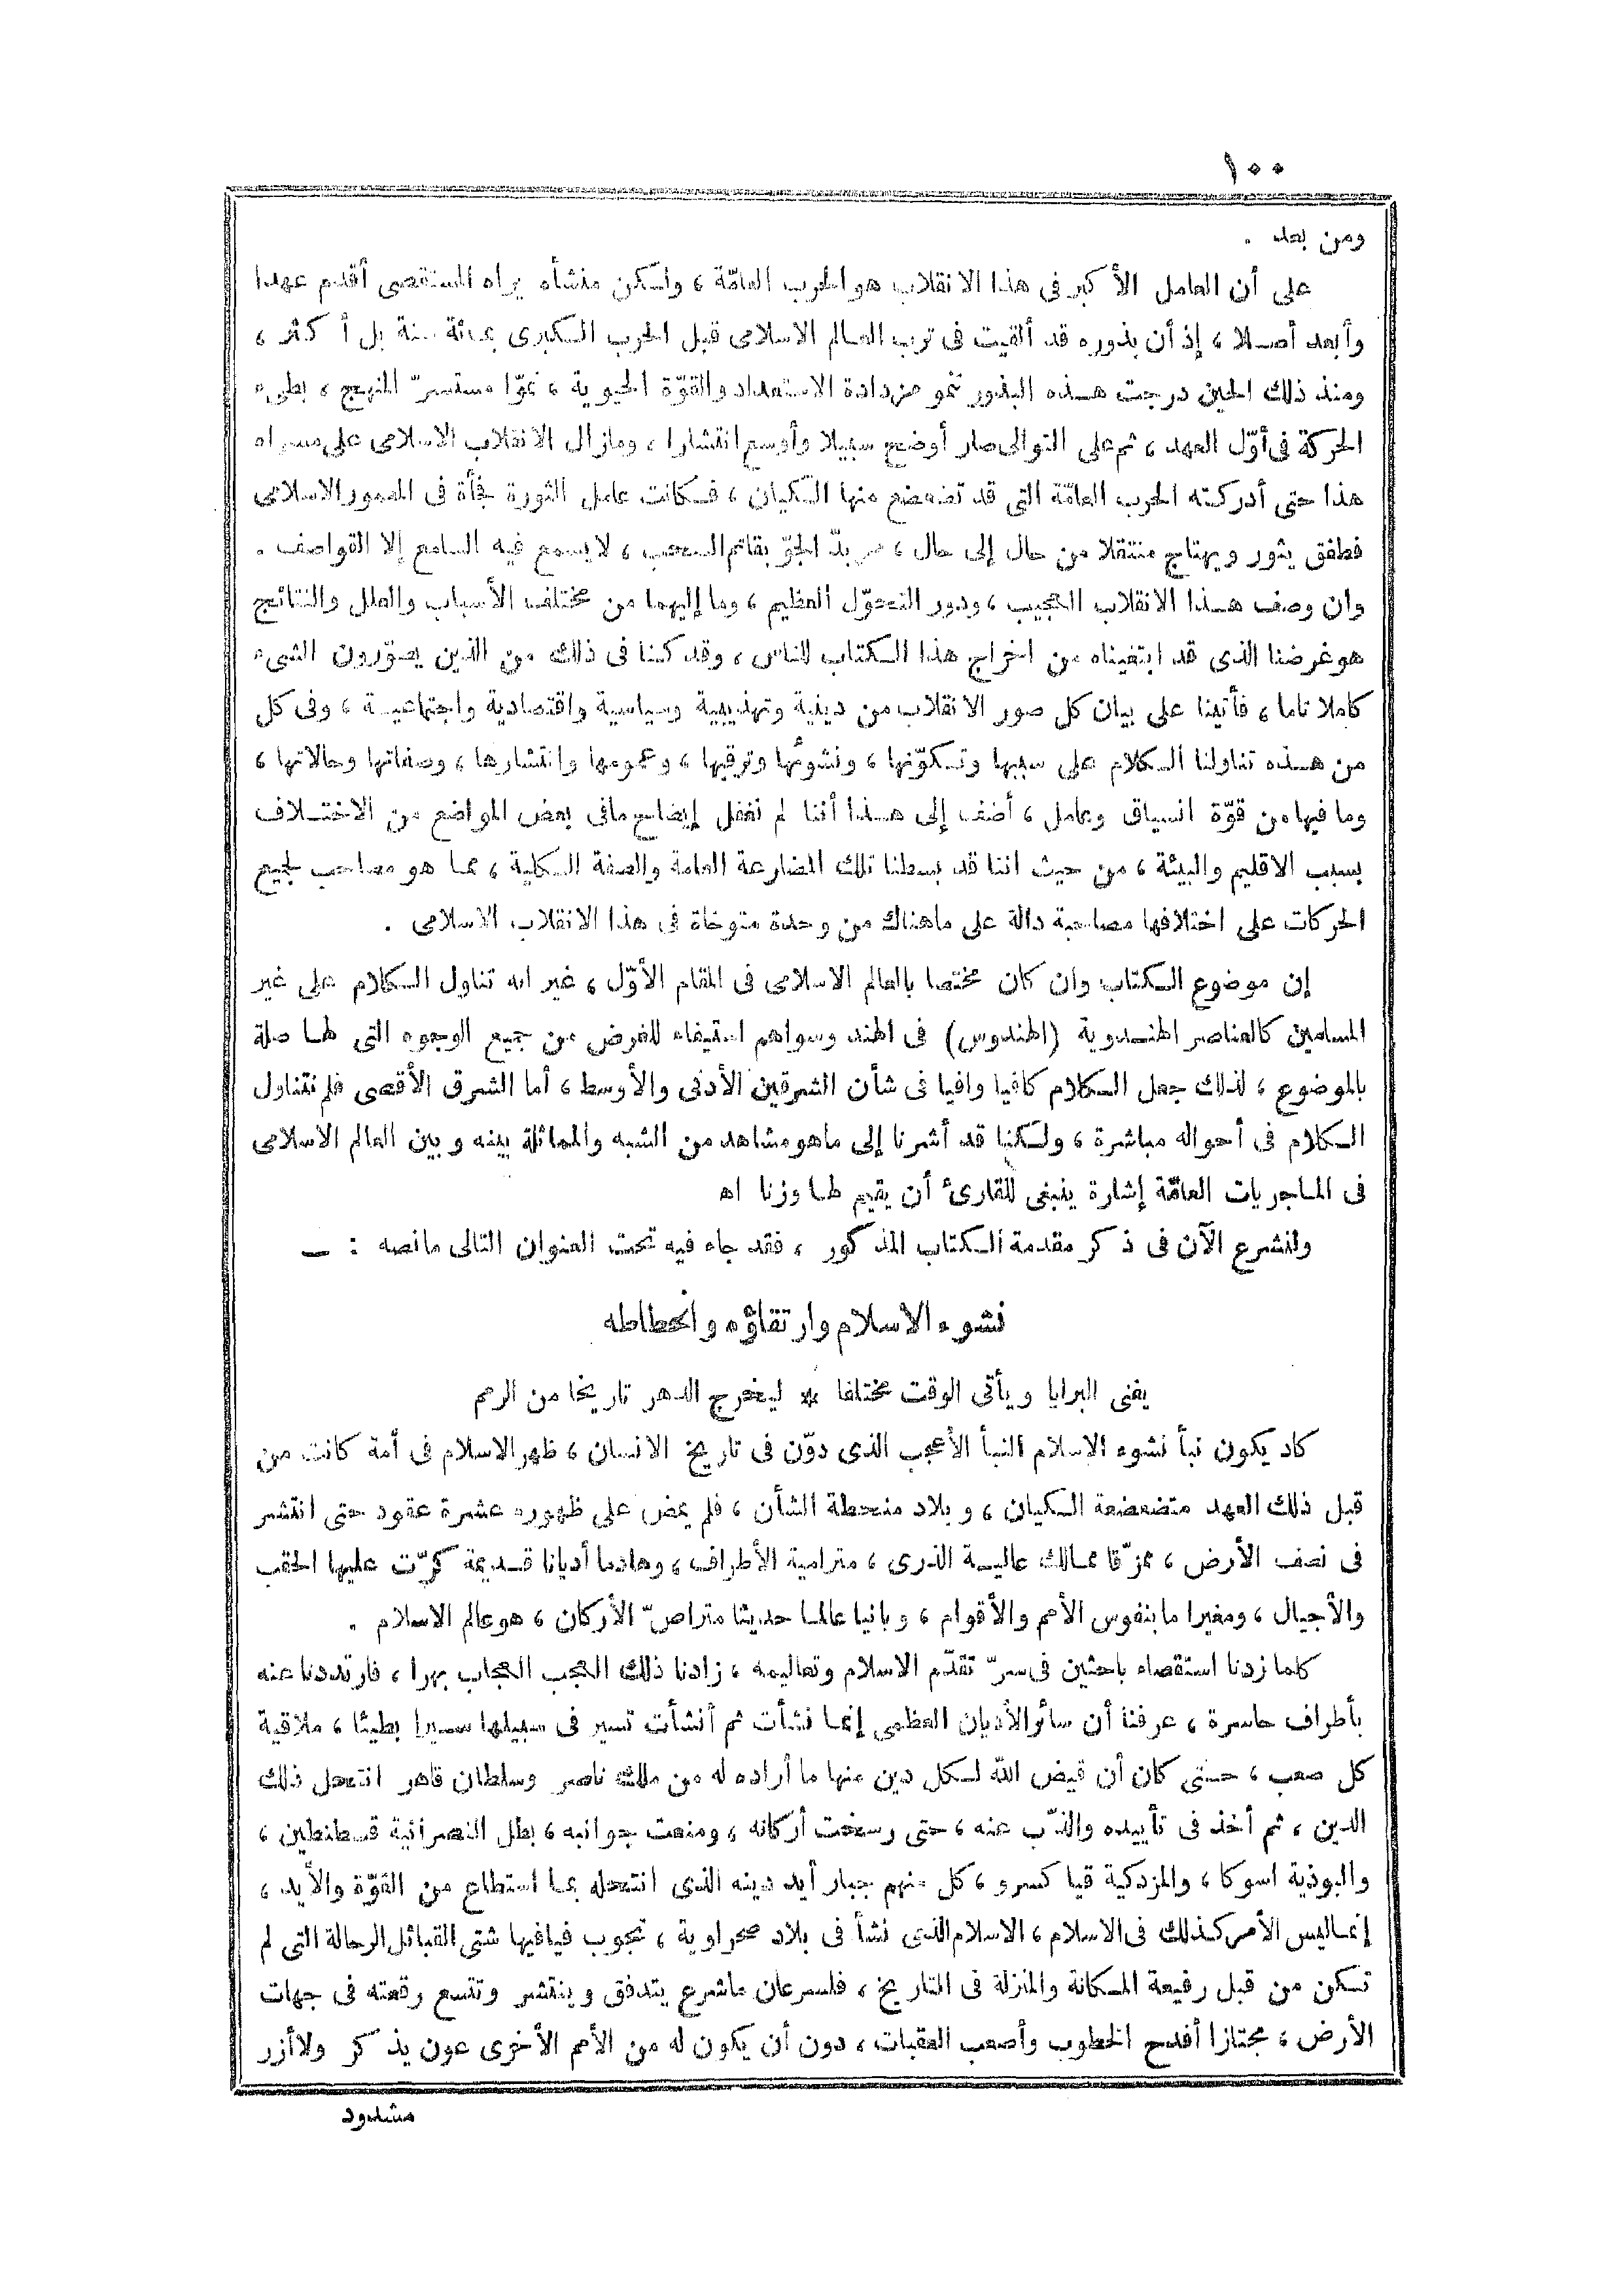 ١٠٠
ومن بعد .
على أن العامل الأكبر فى هذا الانقلاب هو الحرب العامّة ، ولكن منشأه يراه المستقصى أقدم عهدا
وأبعد أصلا ، إذ أن بذوره قد ألقيت فى ترب العالم الاسلامى قبل الحرب الكبرى بمائة سنة بل أكثر ،
ومنذ ذلك الحين درجت هذه البذور تنمو مزدادة الاستعداد والقوّة الحيوية ، نموّا مستسرّ المنهج ، بطىء
الحركة فى أوّل العهد ، ثم على التوالى صار أوضح سبيلا وأوسع انتشارا ، ومازال الانقلاب الاسلامى على مسراه
هذا حتى أدركته الحرب العامّة التى قد تضعضع منها الكيان ، فكانت عامل الثورة فجأة فى المعمور الاسلامى
فطفق يثور ويهتاج منتقلا من حال إلى حال ، مربدّ الجوّ بقاتم السحب ، لا يسمع فيه السامع إلا القواصف .
وان وصف هذا الانقلاب العجيب ، ودور التحوّل العظيم ، وما إليهما من مختلف الأسباب والعلل والنتائج
هو غرضنا الذى قد ابتغيناه من اخراج هذا الكتاب للناس ، وقد كنا فى ذلك من الذين يصوّرون الشىء
كاملا تاما ، فأتينا على بيان كل صور الانقلاب من دينية وتهذيبية وسياسية واقتصادية واجتماعية ، وفى كل
من هذه تناولنا الكلام على سببها وتكوّنها ، ونشوئها وترقيها ، وعمومها وانتشارها ، وصفاتها وحالاتها ،
وما فيها من قوّة انسياق وعامل ، أضف إلى هذا أننا لم نغفل إيضاح مافى بعض المواضع من الاختلاف
بسبب الاقليم والبيئة ، من حيث اننا قد بسطنا تلك المضارعة العامة والصفة الكلية ، مما هو مصاحب لجميع
الحركات على اختلافها مصاحبة دالة على ماهناك من وحدة متوخاة فى هذا الانقلاب الاسلامى .
إن موضوع الكتاب وان كان مختصا بالعالم الاسلامى فى المقام الأوّل ، غير انه تناول الكلام على غير
المسلمين كالعناصر الهندوية (الهندوس) فى الهند وسواهم استيفاء للغرض من جميع الوجوه التى لها صلة
بالموضوع ، لذلك جعل الكلام كافيا وافيا فى شأن الشرقين الأدنى والأوسط ، أما الشرق الأقصى فلم نتناول
الكلام فى أحواله مباشرة ، ولكنا قد أشرنا إلى ماهو مشاهد من الشبه والمماثلة بينه وبين العالم الاسلامى
فى الماجريات العامّة إشارة ينبغى للقارئ أن يقيم لها وزنا اه
ولنشرع الآن فى ذكر مقدمة الكتاب المذكور ، فقد جاء فيه تحت العنوان التالى مانصه : ــ
نشوء الاسلام وارتقاؤه وانحطاطه
يفنى البرايا ويأتى الوقت مختلفا * ليخرج الدهر تاريخا من الرمم
كاد يكون نبأ نشوء الاسلام النبأ الأعجب الذى دوّن فى تاريخ الانسان ، ظهر الاسلام فى أمة كانت من
قبل ذلك العهد متضعضعة الكيان ، وبلاد منحطة الشأن ، فلم يمض على ظهوره عشرة عقود حتى انتشر
فى نصف الأرض ، ممزّقا ممالك عالية الذرى ، مترامية الأطراف ، وهادما أديانا قديمة كرّت عليها الحقب
والأجيال ، ومغيرا ما بنفوس الأمم والأقوام ، وبانيا عالما حديثا متراصّ الأركان ، هو عالم الاسلام .
كلما زدنا استقصاء باحثين فى سرّ تقدّم الاسلام وتعاليمه ، زادنا ذلك العجب العجاب بهرا ، فارتددنا عنه
بأطراف حاسرة ، عرفنا أن سائر الأديان العظمى إنما نشأت ثم أنشأت تسير فى سبيلها سيرا بطيئا ، ملاقية
كل صعب ، حتى كان أن قيض الله لكل دين منها ما أراده له من ملك ناصر وسلطان قاهر انتحل ذلك
الدين ، ثم أخذ فى تأييده والذّب عنه ، حتى رسخت أركانه ، ومنعت جوانبه ، بطل النصرانية قسطنطين ،
والبوذية اسوكا ، والمزدكية قيا كسرو ، كل منهم جبار أيد دينه الذى انتحله بما استطاع من القوّة والأيد ،
إنما ليس الأمر كذلك فى الاسلام ، الاسلام الذى نشأ فى بلاد صحراوية ، تجوب فيافيها شتى القبائل الرحالة التى لم
تكن من قبل رفيعة المكانة والمنزلة فى التاريخ ، فلسرعان ماشرع يتدفق وينتشر وتتسع رقعته فى جهات
الأرض ، مجتازا أفدح الخطوب وأصعب العقبات ، دون أن يكون له من الأمم الأخرى عون يذكر ولا أزر
مشدود